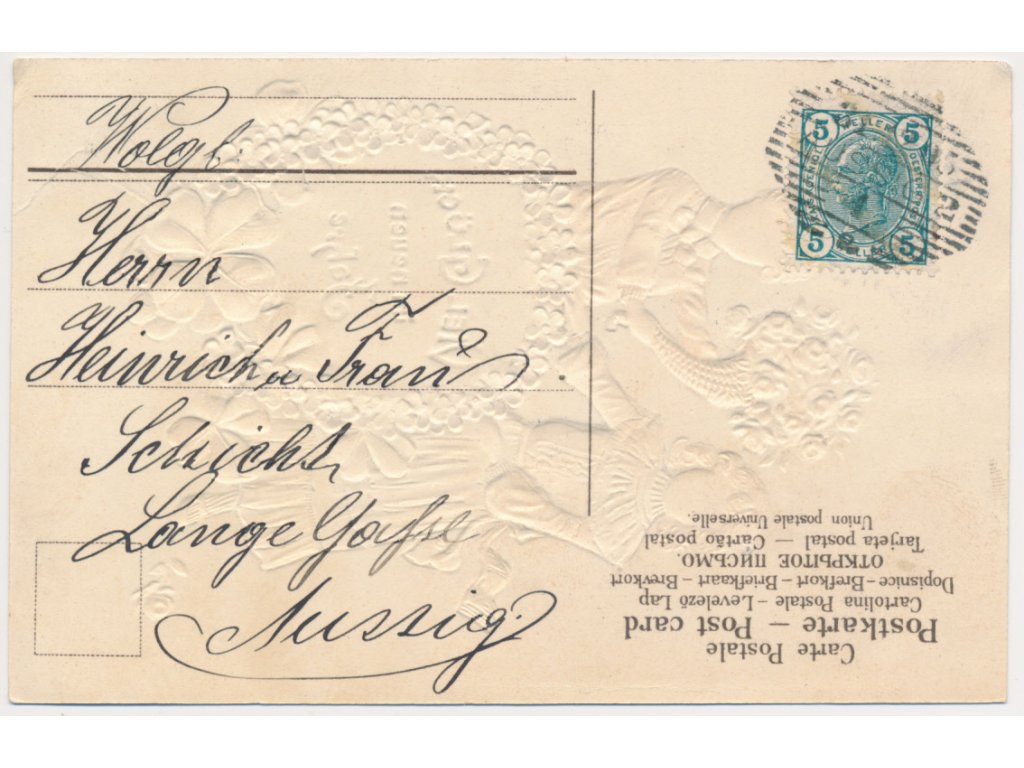 Wolgb.
Herrn
Heinrich u Frau
Schicht
Lange Gasse
Aussig
5 HELLER 5
5 HELLER 5
Carte Postale
Postkarte – Post card
Cartolina Postale – Levelező Lap
Dopisnice – Brefkort – Briefkaart – Brevkort
ОТКРЫТОЕ ПИСЬМО.
Tarjeta postal – Cartão postal
Union postale Universelle.